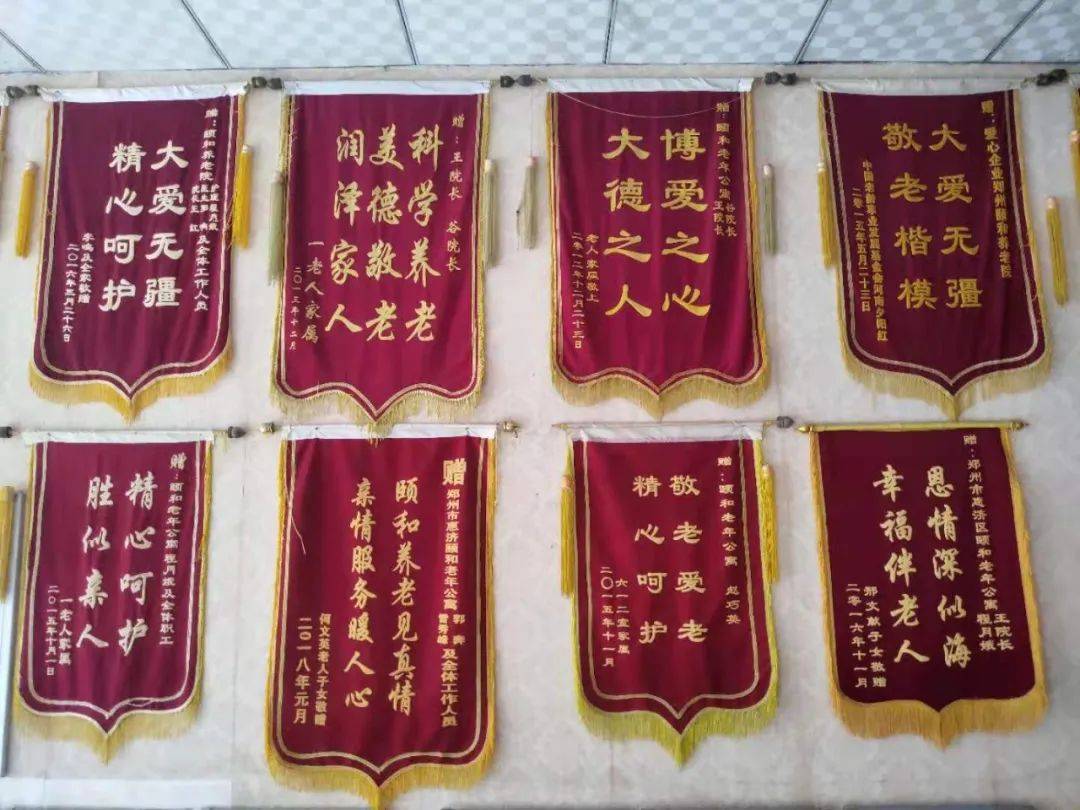 赠：颐和养老院
及全体工作人员
大爱无疆
精心呵护
李鸣及全家敬赠
二〇一六年三月二十六日
赠：王院长 谷院长
科学养老
美德敬老
润泽家人
一老人家属
二〇一三年十二月
赠：颐和老年公寓谷院长
王院长
博爱之心
大德之人
老人家属敬上
二零一二年十一月二十三日
赠：爱心企业郑州颐和养老院
大爱无疆
敬老楷模
中国老龄事业发展基金会河南夕阳红
二零一五年五月二十三日
赠：颐和老年公寓程月娥及全体职工
精心呵护
胜似亲人
一老人家属
二〇一五年十月一日
赠
郑州市惠济颐和老年公寓
及全体工作人员
颐和养老见真情
亲情服务暖人心
何文英老人子女敬赠
二〇一八年元月
赠：颐和老年公寓 赵巧英
敬老爱老
精心呵护
六一二室家属
二〇一五年十一月
赠：郑州市惠济区颐和老年公寓王院长
程月娥
恩情深似海
幸福伴老人
邢文献子女敬赠
二零一六年十一月